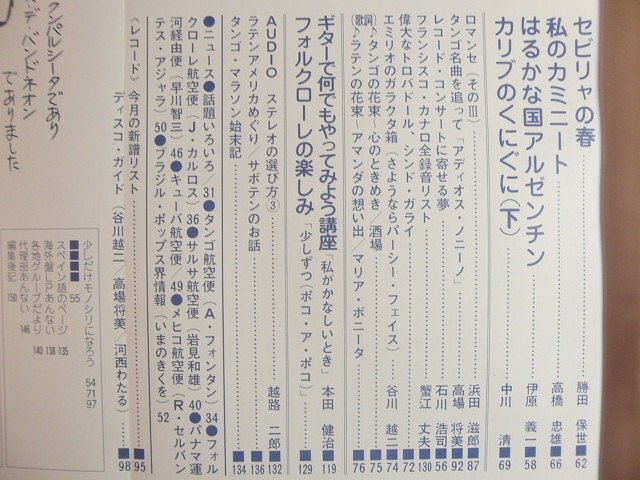 セビリャの春 勝田 保世■62
私のカミニート 高橋 忠雄■66
はるかな国アルゼンチン 伊原 義一■58
カリブのくにぐに(下) 中川 清■69
ロマンセ(そのⅢ) 浜田 滋郎■87
タンゴ名曲を追って「アディオス・ノニーノ」 高場 将美■92
レコード・コンサートに寄せる夢 石川 浩司■56
フランシスコ・カナロ全録音リスト 蟹江 丈夫■130
偉大なトロバドール、シンド・ガライ ■72
エミリオのガラクタ箱(さようならパーシー・フェイス) 谷川 越二■74
(歌詞)♪タンゴの花束〜心のときめき/酒場 ■75
♪ラテンの花束〜アマンダの想い出/マリア・ボニータ ■76
ギターで何でもやってみよう講座「私がかなしいとき」 本田 健治■119
フォルクローレの楽しみ「少しずつ(ポコ・ア・ポコ)」 ■129
AUDIO ステレオの選び方③ 越路 二郎■132
ラテンアメリカめぐり/サボテンのお話 ■136
タンゴ・マラソン始末記 ■134
●ニュース●話題いろいろ/31●タンゴ航空便(A・フォンタン)34●フォル
クローレ航空便(J・カルロス)36●サルサ航空便(岩見和雄)40●パナマ運
河経由便(早川智三)46●キューバ航空便/49●メヒコ航空便(R・セルバン
テス・アジャラ)50●ブラジル・ポップス界情報(いまのきくを)52
《レコード》今月の新譜リスト ■95
ディスコ・ガイド(谷川越二/高場将美/河西わたる) ■98
少しだけモノシリになろう 54 71 97
■■■■55
スペイン語のページ 135
海外盤LPあんない 138
各地グループだより 140
代理部あんない 146
編集後記 150
クンパルシータであり
・デ・バンドネオン
でありました